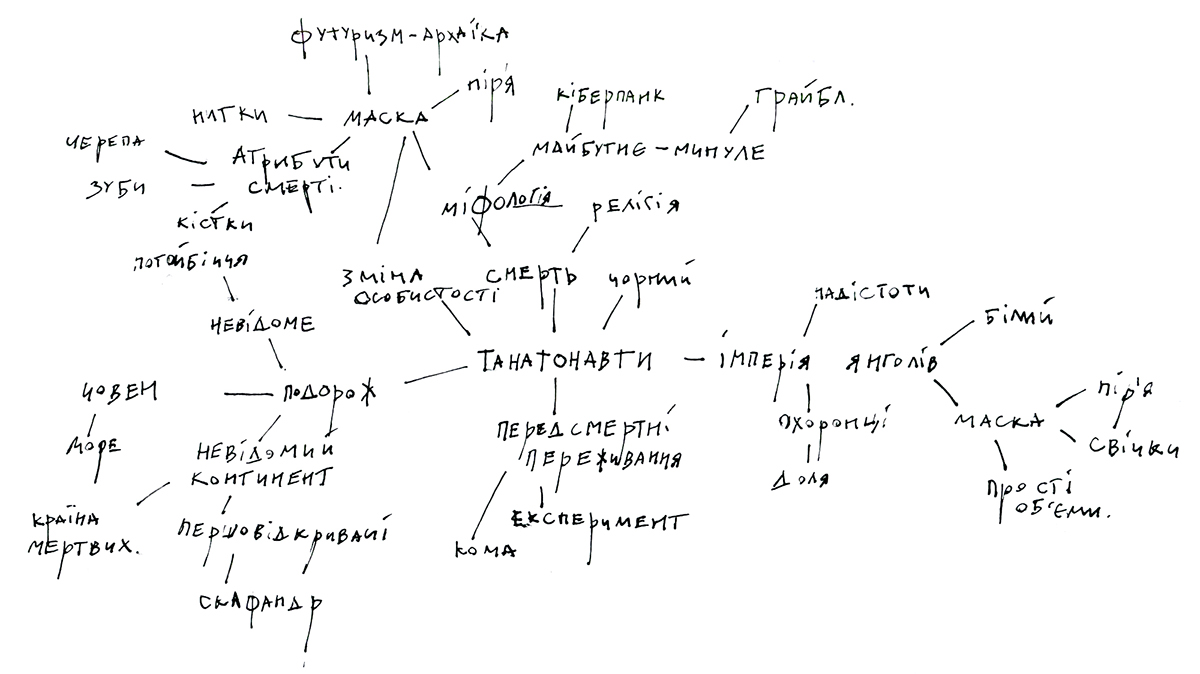 футуризм-архаїка
пір'я
нитки
маска
черепа
атрибути
смерті.
зуби
кістки
потойбіччя
кіберпанк
грайбл.
майбутнє - минуле
міфологія
релігія
зміна
особистості
смерть
чорний
невідоме
надістоти
білий
танатонавти
імперія янголів
човен
подорож
море
невідомий
континент
передсмертні
переживання
охоронці
доля
маска
пір'я
свічки
прості
об'єми.
країна
мертвих.
першовідкривачі
експеримент
кома
скафандр